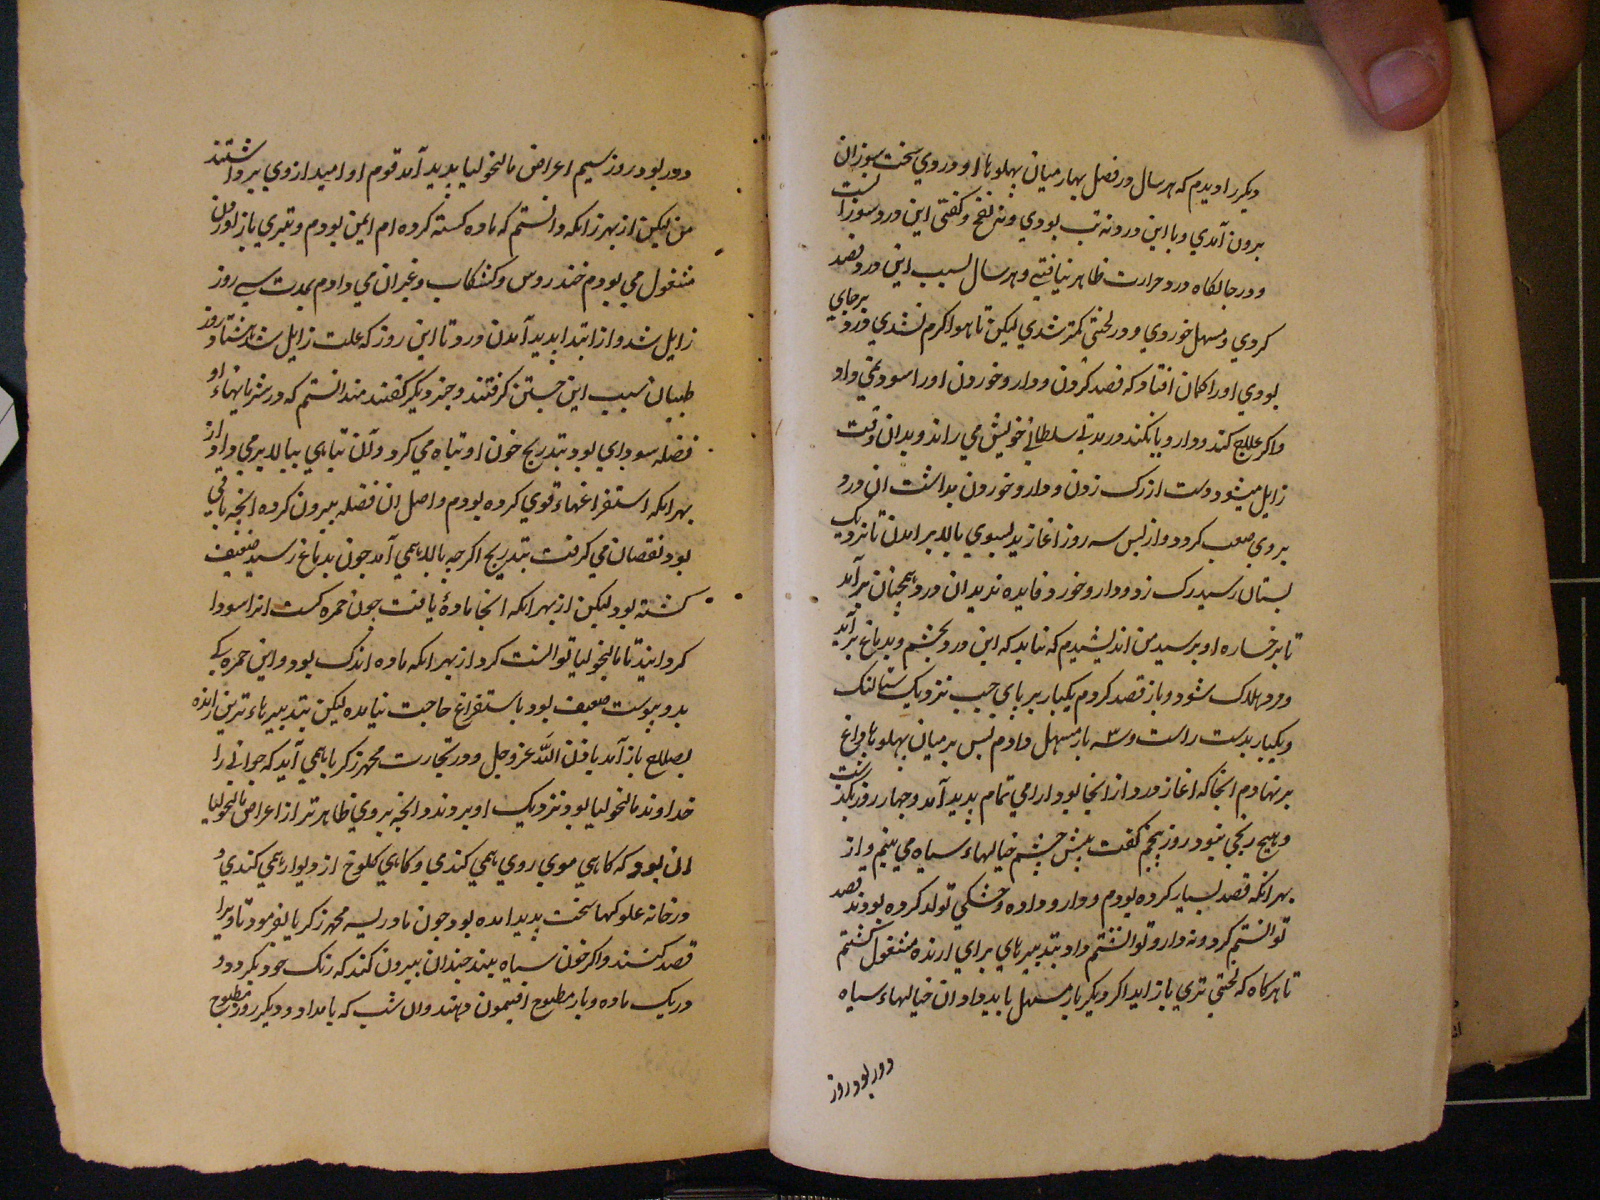 دیگر را دیدم که هر سال در فصل بهار میان پهلوها او دردی سخت سوزان
برون آمدی و با این درد نه تب بودی و نه نفخ و گفتی این درد سوزانست
و در جایگاه درد حرارت ظاهر نیافتمی و هر سال بسبب این درد فصد
کردی و مسهل خوردی و درد لختی کمتر شدی لیکن تا هوا گرم نشدی درد بر جای
بودی او را گمان افتاد که فصد کردن و دارو خوردن او را سود نمی داد
و اگر علاج کند و دارو یا نکند درد بی سلطانی خویش می راند و بدان وقت
زایل میشود دست از رگ زدن و دارو خوردن بداشت ان درد
بر وی صعب گردد و از پس سه روز اغازید بسوی بالا بر امدن تا نزدیک
پستان رسید رگ زد و دارو خورد و فایده ندید ان درد همچنان بر آمد
تا بر خساره او برسید من اندیشیدم که نباید که این درد بچشم و بدماغ بر آید
و مرد هلاک شود و باز فصد کردم یکبار بر پای چپ نزدیک شتالنک
و یکبار بدست راست و سه بار مسهل دادم پس بر میان پهلوها داغ
بر نهادم انجا که اغاز درد از انجا بود ارامی تمام پدید آمد و چهار روز بگذشت
و هیچ رنجی نبود روز پنجم گفت پیش چشم خیالهاء سیاه می بینم و از
بهر انکه فصد بسیار کرده بودم و دارو داده و خشکی تولد کرده بود نه فصد
توانستم کرد و نه دارو توانستم داد بتدبیرهای برای ارنده مشغول گشتم
تا هرگاه که لختی تری باز اید اگر دیگر بار مسهل باید داد ان خیالهاء سیاه
دور بود روز
دور بود روز سیم اعراض مالیخولیا پدید آمد قوم او امید از وی برداشتند
من لیکن از بهر انکه دانستم که ماده گسته کرده ام ایمن بودم و بتبری باز اوردن
مشغول می بودم خندروس و کشکاب و غیر ان می دادم بمدت سی روز
زایل شد و از ابتدا پدید آمدن درد تا این روز که علت زایل شد هشتاد روز
طبیبان سبب این جستن گرفتند و چیز دیگر گفتند من دانستم که در شریانهاء او
فضله سودای بود بتدریج خون او تباه می کرد و آن تباهی ببالا بر می داد و از
بهر انکه استفراغهاء قوی کرده بودم و اصل ان فضله بیرون کرده انچه باقی
بود نقصان می گرفت بتدریج اگرچه بالا همی آمد چون بدماغ رسید ضعیف
گشته بود لیکن از بهر انکه انجا مادهٔ یافت چون حمره گست انرا سودا
گردانید تا مالیخولیا توانست کرد از بهر انکه ماده اندک بود و این حمره کی
بدو پیوست ضعیف بود باستفراغ حاجت نیامده لیکن بتدبیرهاء تری ارنده
بصلاح باز آمد باذن اللّه عز و جل و در تجارت محمد زکریا همی آید که جوانی را
خداوند مالیخولیا بود نزدیک او بردند و انچه بر وی ظاهرتر از اعراض مالیخولیا
ان بود که گاهی موی روی همی کندی و گاهی کلوخ از دیوار همی کندی و
در خانه علوکها سخت پدید امده بود چون ماوریسه محمد زکریا بفرمود تا ویرا
فصد کنند و اگر خون سیاه بیند چندان بیرون کند که رنگ خون بگردد و
در یک ماده و بار مطبوخ افتیمون دهند و ان شب که بامداد و دیگر روز مطبوخ